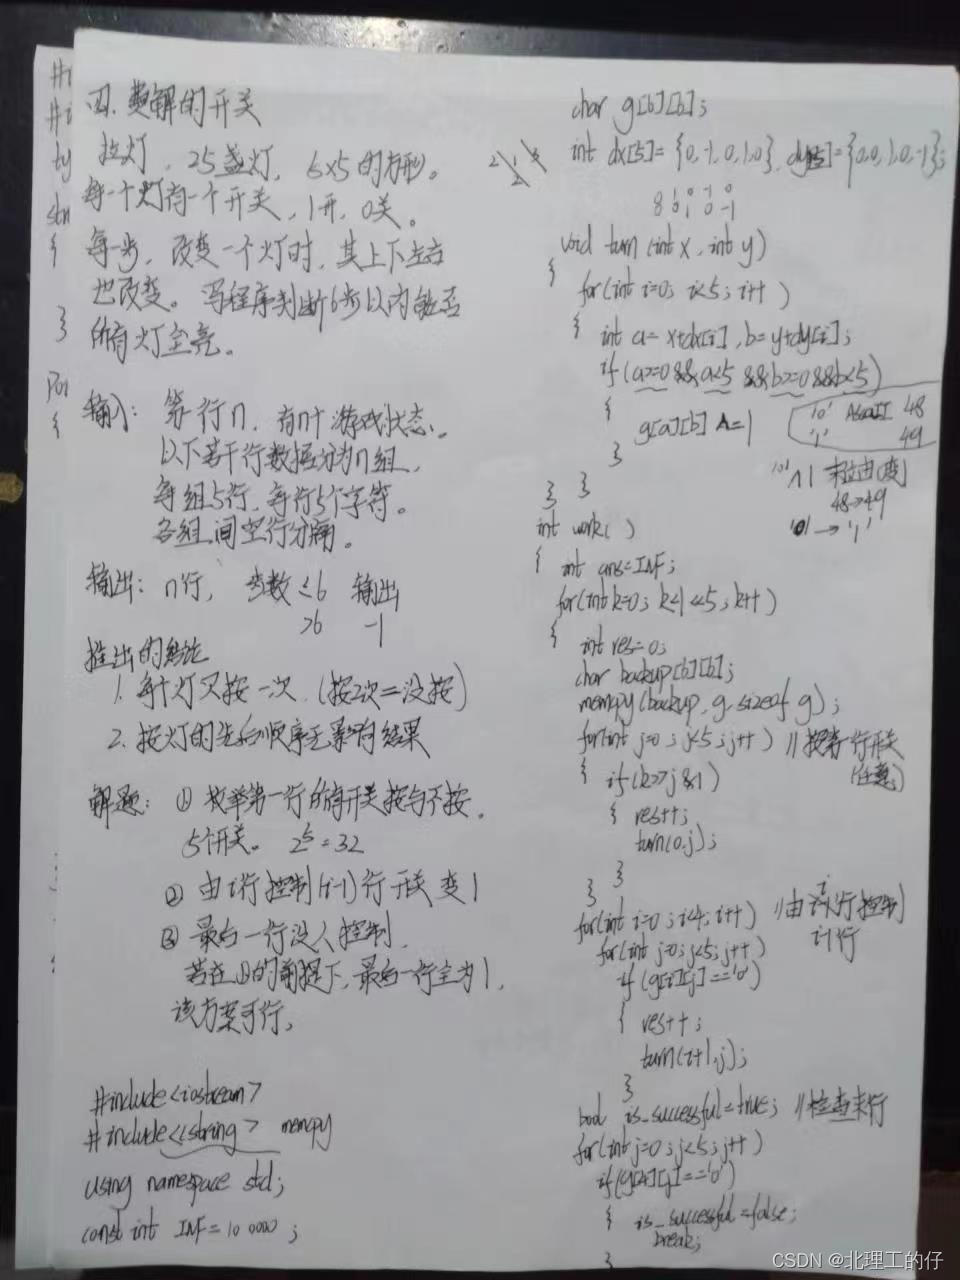 四. 费解的开关
拉灯，25盏灯，5x5的方形。
每一个灯有一个开关，1开，0关。
每一步，改变一个灯时，其上下左右
也改变。写程序判断6步以内能否
所有灯全亮。
输入：第一行n，有n个游戏状态。
以下若干行数据分为n组，
每组5行，每行5个字符。
各组间空行分隔。
输出：n行，步数≤6 输出
>6 -1
推出的结论
1. 每个灯只按一次.(按2次=没按)
2. 按灯的先后顺序无影响结果
解题：① 枚举第一行的所有开关按与不按.
5个开关。2^5=32
② 由i行控制(i-1)行开关变1
③ 最后一行没人控制.
若在②的前提下，最后一行全为1，
该方案可行。
#include<iostream>
#include<cstring> memcpy
using namespace std;
const int INF=10 0000;
char g[6][6];
int dx[5]={0,-1,0,1,0}, dy[5]={0,0,1,0,-1};
void turn (int x, int y)
{
for(int i=0; i<5; i++)
{ int a=x+dx[i], b=y+dy[i];
if(a>=0&&a<5 &&b>=0&&b<5)
{
g[a][b] ^=1
}
} }
'0' AscII 48
'1' 49
'0'^1
48→49
'0'→'1'
int work( )
{ int ans=INF;
for(int k=0; k<1<<5; k++)
{ int res=0;
char backup[6][6];
memcpy(backup, g, sizeof g);
for(int j=0; j<5; j++) //按第一行开关
{ if(k>>j&1) (任意)
{ res++;
turn(0,j);
}
}
for(int i=0; i<4; i++) //由i+1行控制
i行
for(int j=0; j<5; j++)
if(g[i][j]=='0')
{ res++;
turn(i+1,j);
}
bool is_successful=true; //检查末行
for(int j=0; j<5; j++)
if(g[4][j]=='0')
{ is_successful=false;
break;
}
#i
#i
ty
stru
{
}
Po
{
CSDN @北理工的仔